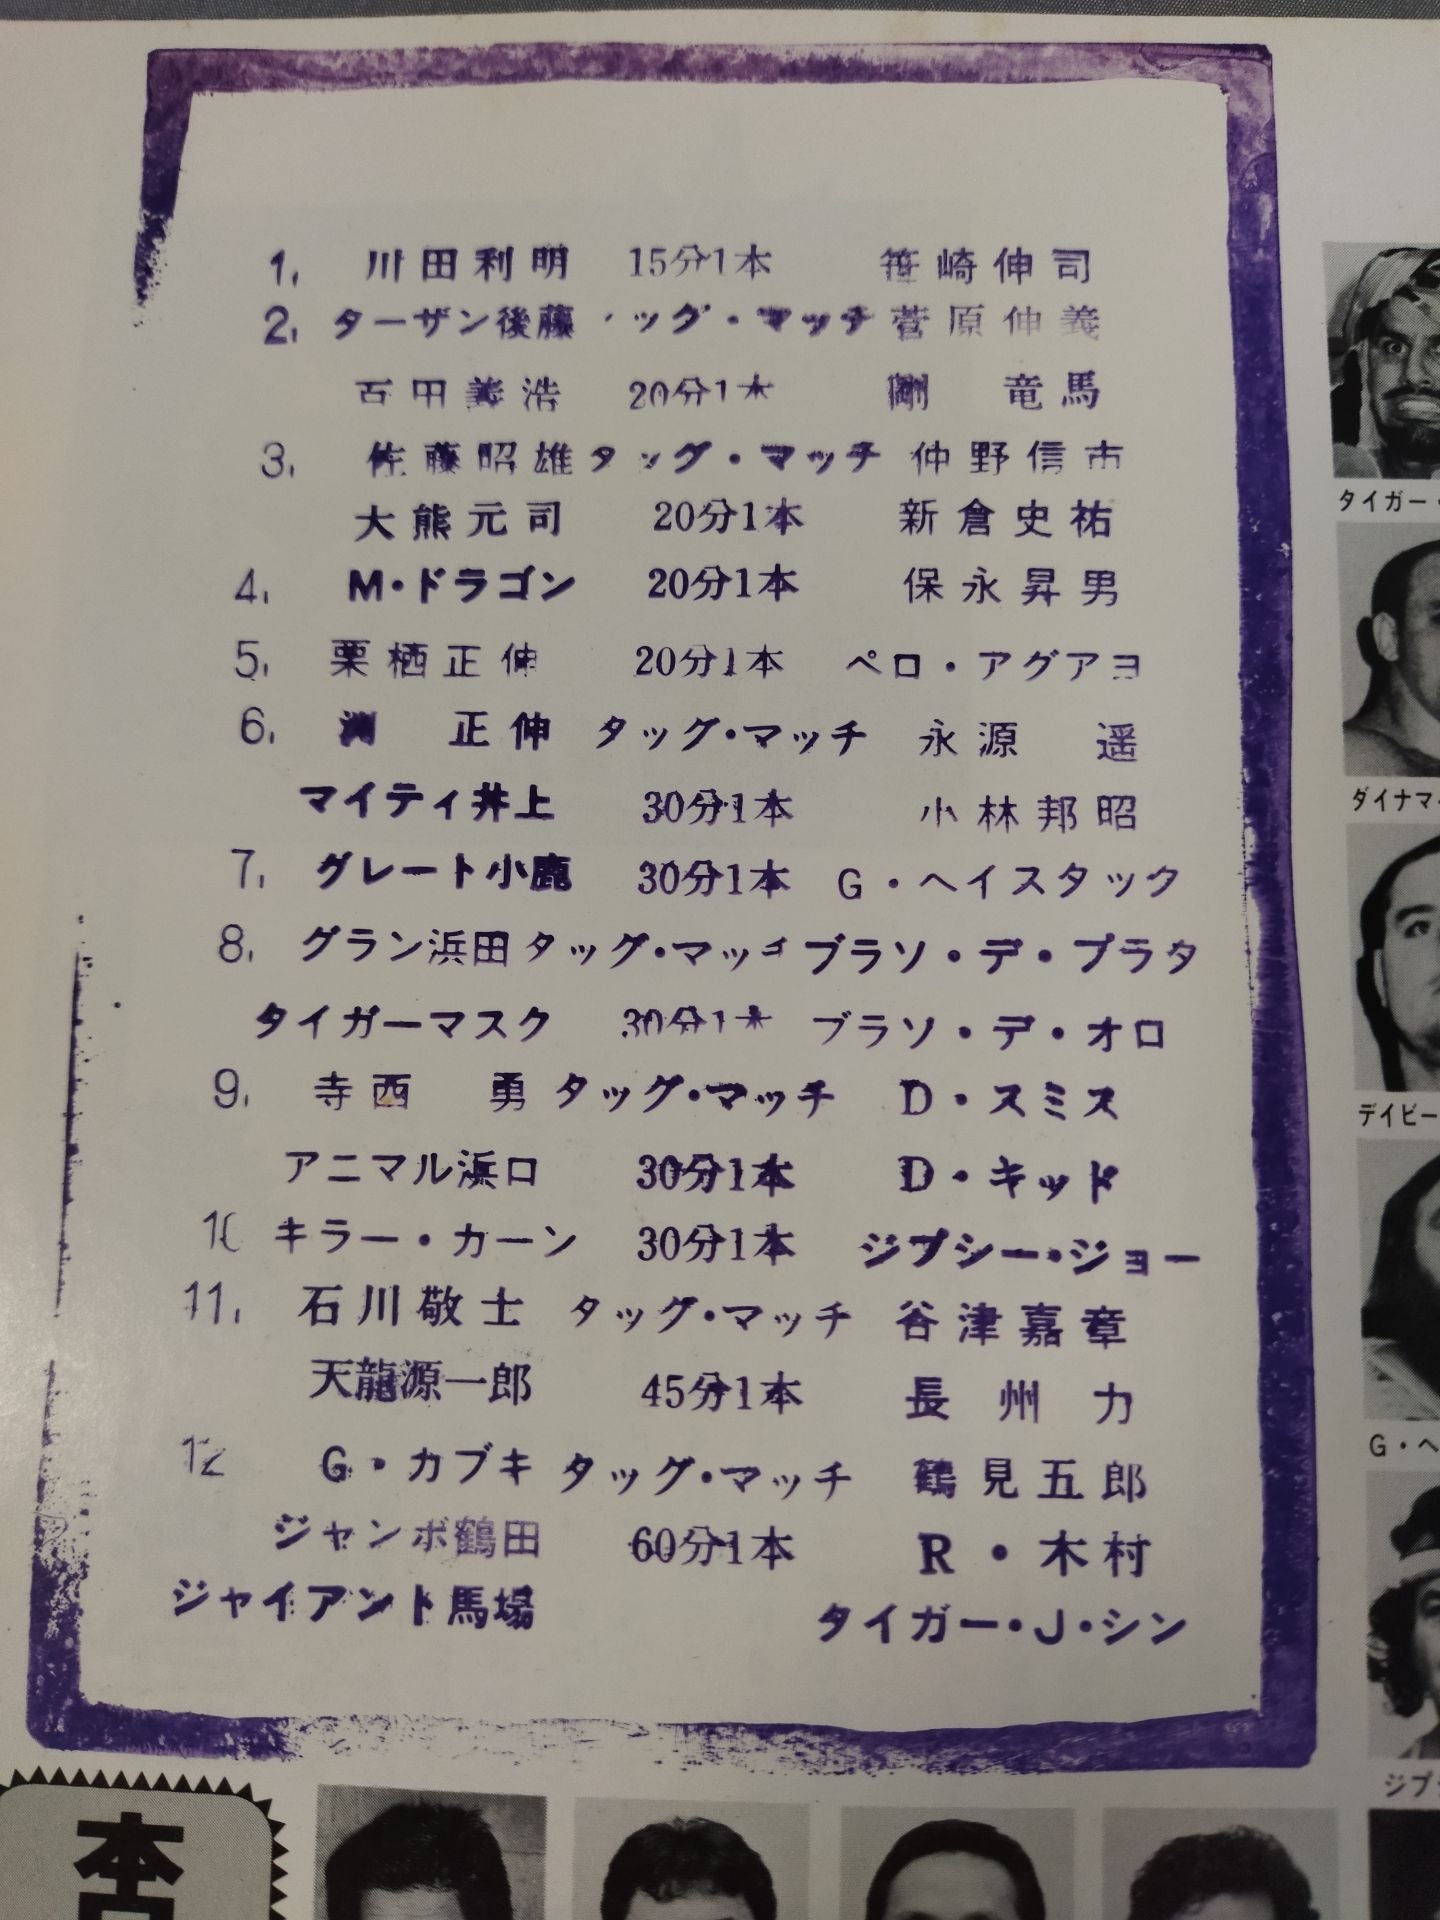 1, 川田利明 15分1本 笹崎伸司
2, ターザン後藤 ッグ・マッチ 菅原伸義
百田義浩 20分1本 剛 竜馬
3, 佐藤昭雄 タッグ・マッチ 仲野信市
大熊元司 20分1本 新倉史祐
4, M・ドラゴン 20分1本 保永昇男
5, 栗栖正伸 20分1本 ペロ・アグアヨ
6, 渕 正伸 タッグ・マッチ 永源 遥
マイティ井上 30分1本 小林邦昭
7, グレート小鹿 30分1本 G・ヘイスタック
8, グラン浜田 タッグ・マッチ ブラソ・デ・プラタ
タイガーマスク 30分1本 ブラソ・デ・オロ
9, 寺西 勇 タッグ・マッチ D・スミス
アニマル浜口 30分1本 D・キッド
10 キラー・カーン 30分1本 ジプシー・ジョー
11, 石川敬士 タッグ・マッチ 谷津嘉章
天龍源一郎 45分1本 長州 力
12 G・カブキ タッグ・マッチ 鶴見五郎
ジャンボ鶴田 60分1本 R・木村
ジャイアント馬場 タイガー・J・シン
タイガー・
ダイナマ
デイビー
G・ヘ
ジプ